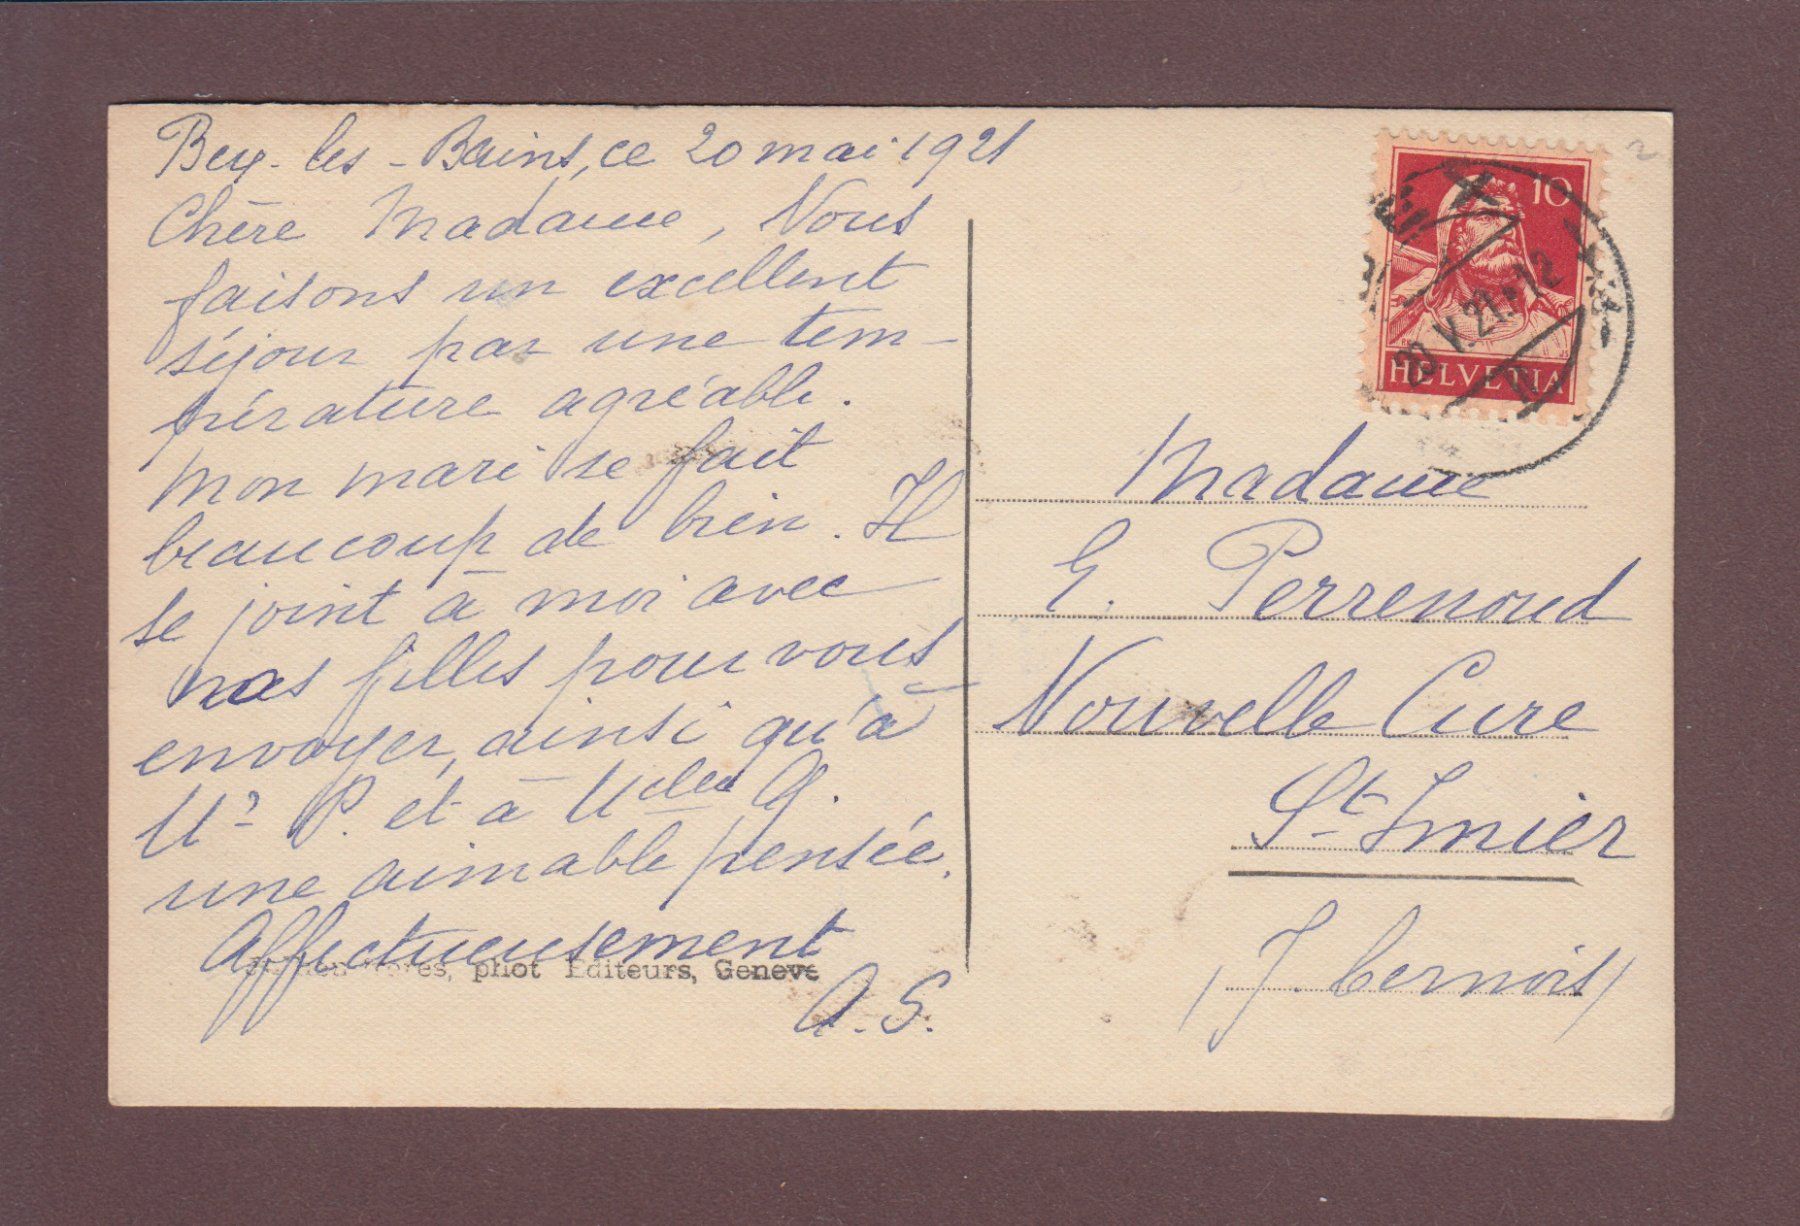 Bex-les-Bains, ce 20 mai 1921
Chère Madame, Nous
faisons un excellent
séjour par une tem-
pérature agréable.
Mon mari se fait
beaucoup de bien. Il
se joint à moi avec
nos filles pour vous
envoyer, ainsi qu'à
Mr P. et à Mdes G.
une aimable pensée.
Affectueusement
A. S.
phot Editeurs, Geneve
10
20 V. 21.-12
HELVETIA
Madame
E. Perrenoud
Nouvelle Cure
St Imier
(J. bernois)
2